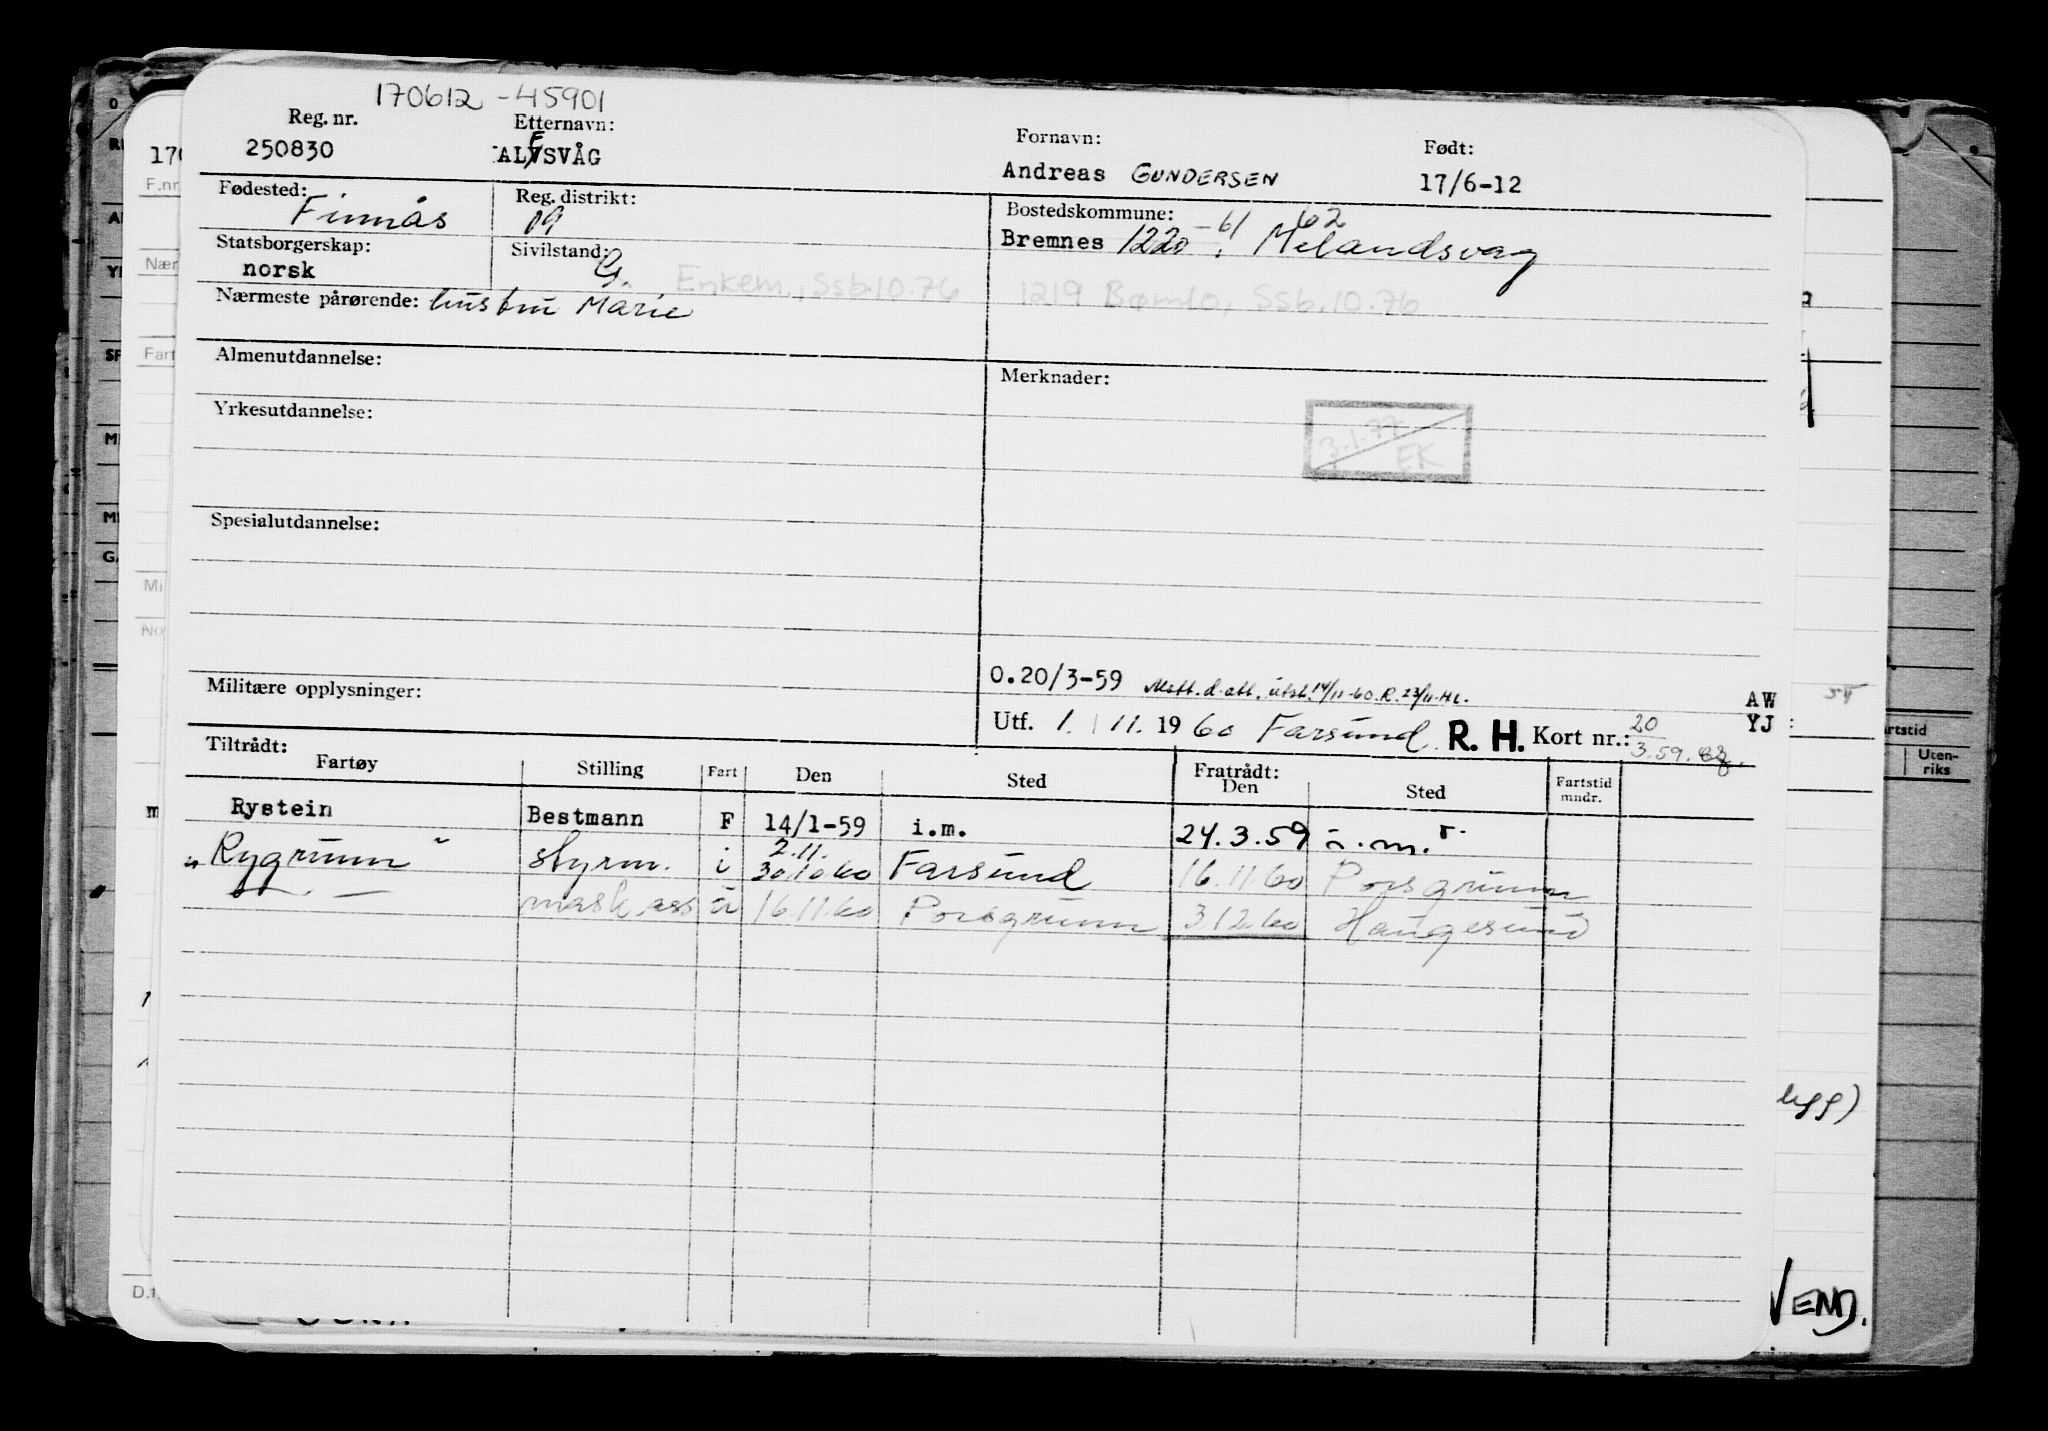 170612 - 45901
Reg. nr. Etternavn: Fornavn: Født:
250830 ALFSVÅG Andreas GUNDERSEN 17/6-12
Fødested: Finnås Reg. distrikt: Bostedskommune: 62
Bremnes 1220 -61 Melandsvag
Statsborgerskap: norsk Sivilstand: G.
Enkem., Ssb.10.76 1219 Bømlo, Ssb.10.76
Nærmeste pårørende: hustru Marie
Almenutdannelse: Merknader:
Yrkesutdannelse:
3.1.77
EK
Spesialutdannelse:
0.20/3-59 Mott. d. att. utst. 14/11-60. R. 23/11- AW
Militære opplysninger:
Utf. 1. 11. 1960 Farsund R. H. Kort nr.: 20 YJ
3.59.
Tiltrådt: Fratrådt:
Fartøy Stilling Fart Den Sted Den Sted Fartstid mndr.
Rystein Bestmann F 14/1-59 i.m. 24.3.59 i.m.
2.11.
Rygrunn styrm. i 30.10.60 Farsund 16.11.60 Porsgrunn
— " — mask ass u 16.11.60 Porsgrunn 3.12.60 Haugesund
VEND.
F.nr.
Fart
D.f
rtstid
Uten-
riks